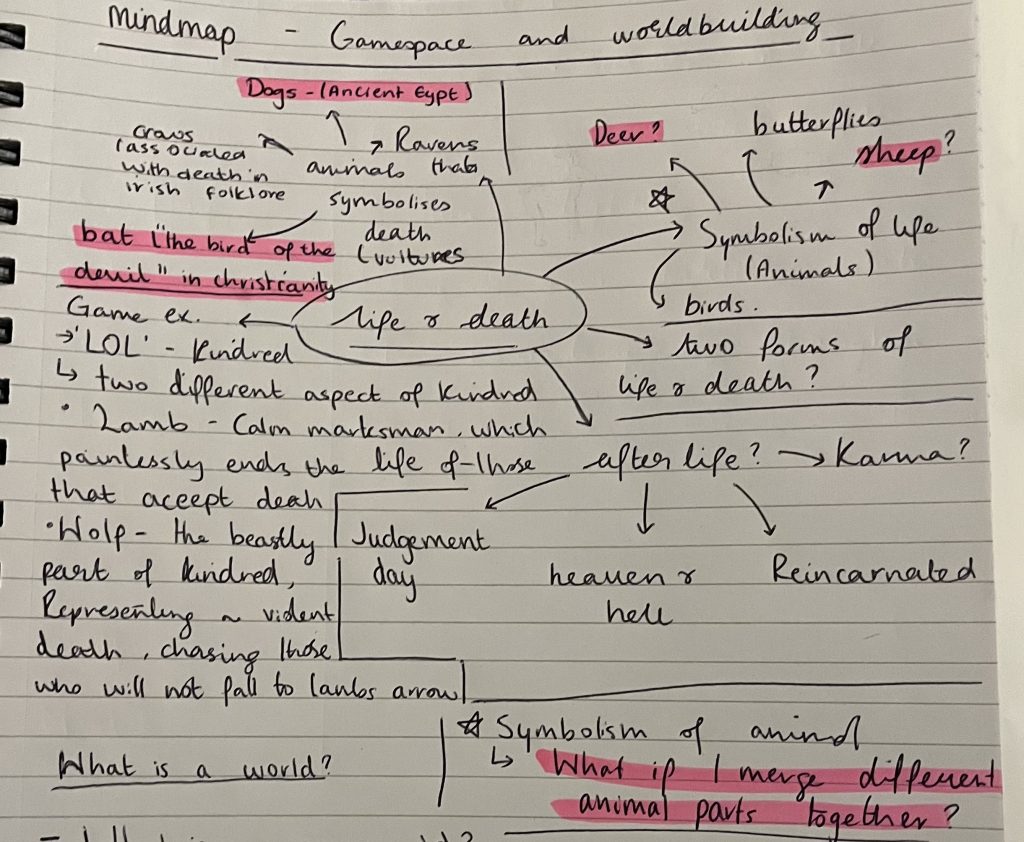 Mindmap - Gamespace and worldbuilding
Dogs - (Ancient Eypt)
Craws
(associated
with death in
irish folklore
Ravens
animals that
symbolises
death
(vultures
bat ("the bird of the
devil" in christianity
Deer?
butterflies
sheep?
☆
Symbolism of life
(Animals)
birds.
life & death
two forms of
life & death?
Game ex.
→'LOL' - Kindred
↳ two different aspect of Kindred
• Lamb - Calm marksman, which
painlessly ends the life of those
that accept deah
• Wolf - the beastly
part of kindred,
Representing a violent
death, chasing those
who will not fall to lambs arrow
after life? → Karma?
Judgement
day
heaven &
hell
Reincarnated
What is a world?
☆ Symbolism of animal
↳ What if I merge different
animal parts together?